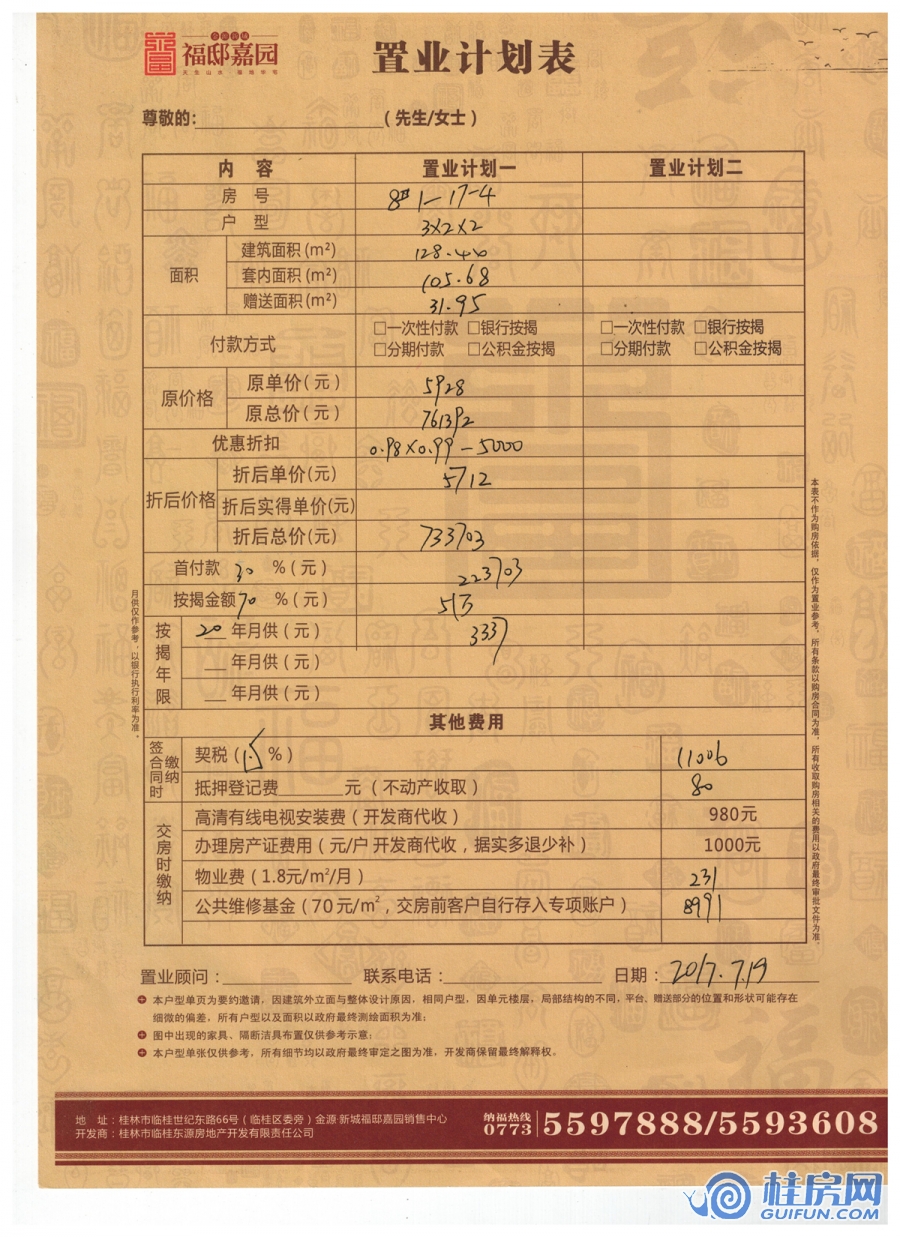 福邸嘉园
置业计划表
尊敬的: (先生/女士)
内 容 置业计划一 置业计划二
房 号 8# 1-17-4
户 型 3×2×2
面积
建筑面积(m²) 128.44
套内面积(m²) 105.68
赠送面积(m²) 31.95
付款方式
□一次性付款 □银行按揭 □一次性付款 □银行按揭
□分期付款 □公积金按揭 □分期付款 □公积金按揭
原价格
原单价(元) 5928
原总价(元) 761392
优惠折扣 0.98×0.99-5000
折后价格
折后单价(元) 5712
折后实得单价(元)
折后总价(元) 733703
首付款 30 %(元) 223703
按揭金额70 %(元) 51万
按揭年限
20 年月供(元) 3337
__ 年月供(元)
__ 年月供(元)
其他费用
签合同时缴纳
契税(1.5%) 11006
抵押登记费______元(不动产收取) 80
交房时缴纳
高清有线电视安装费(开发商代收) 980元
办理房产证费用(元/户 开发商代收,据实多退少补) 1000元
物业费(1.8元/m²/月) 231
公共维修基金(70元/m²,交房前客户自行存入专项账户) 8991
月供仅作参考,以银行执行利率为准。
本表不作为购房依据,仅作为置业参考,所有条款以购房合同为准,所有收取购房相关的费用以政府最终审批文件为准。
置业顾问: 联系电话: 日期:2017.7.19
本户型单页为要约邀请,因建筑外立面与整体设计原因,相同户型,因单元楼层,局部结构的不同,平台、赠送部分的位置和形状可能存在
细微的偏差,所有户型以及面积以政府最终测绘面积为准;
图中出现的家具、隔断洁具布置仅供参考示意;
本户型单张仅供参考,所有细节均以政府最终审定之图为准,开发商保留最终解释权。
地 址:桂林市临桂世纪东路66号(临桂区委旁)金源·新城福邸嘉园销售中心
开发商:桂林市临桂东源房地产开发有限责任公司
纳福热线
0773 5597888/5593608
桂房网
GUIFUN.COM